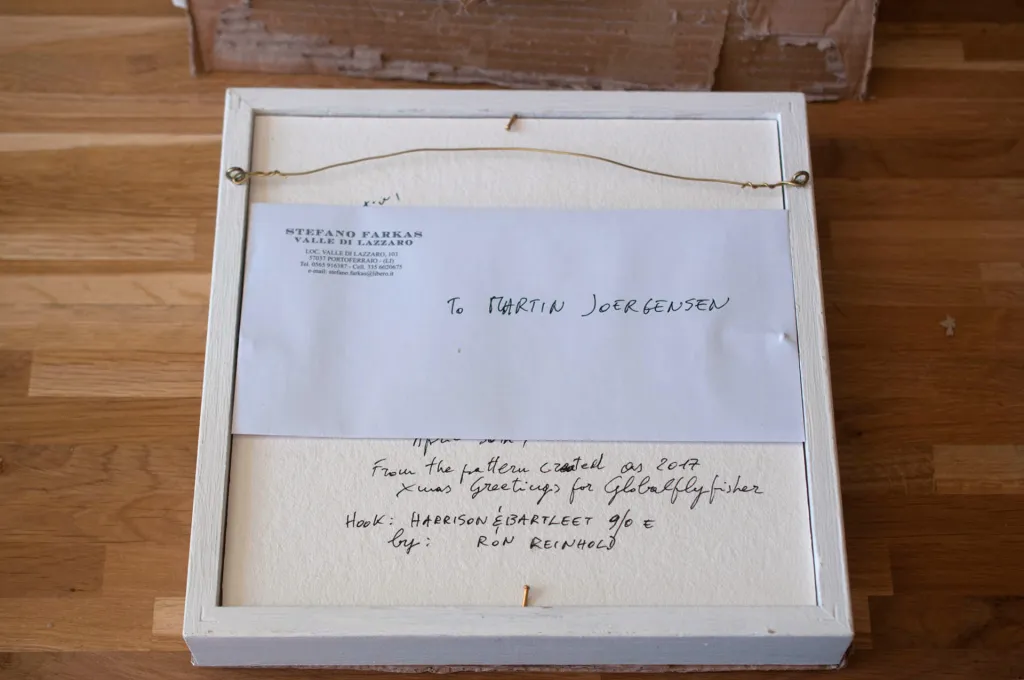 STEFANO FARKAS
VALLE DI LAZZARO
LOC. VALLE DI LAZZARO, 103
57037 PORTOFERRAIO - (LI)
Tel. 0565 916387 - Cell. 335 6020675
e-mail: stefano.farkas@libero.it
To MARTIN JOERGENSEN
From the pattern created as 2017
Xmas Greetings for Globalflyfisher
HOOK: HARRISON & BARTLEET 9/0 E
by: RON REINHOLD